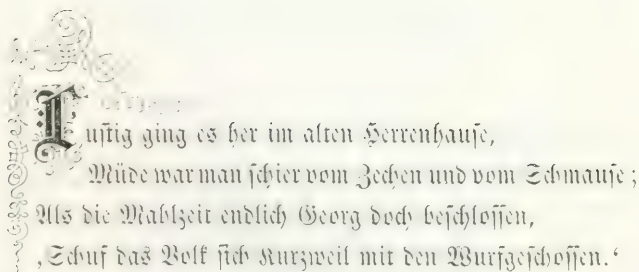 Lustig ging es her im alten Herrenhause,
Müde war man schier vom Zechen und vom Schmause;
Als die Mahlzeit endlich Georg doch beschlossen,
‚Schuf das Volk sich Kurzweil mit den Wurfgeschossen.‘